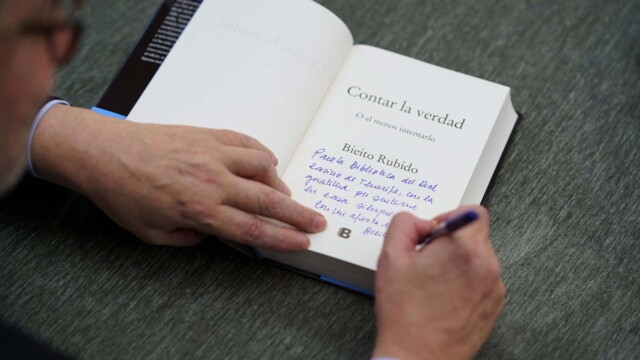 Contar la verdad
O al menos intentarlo
Bieito Rubido
Para la Biblioteca del Real
Casino de Tenerife, con la
gratitud por sentirme
en casa siempre
con mi afecto
Bieito
B